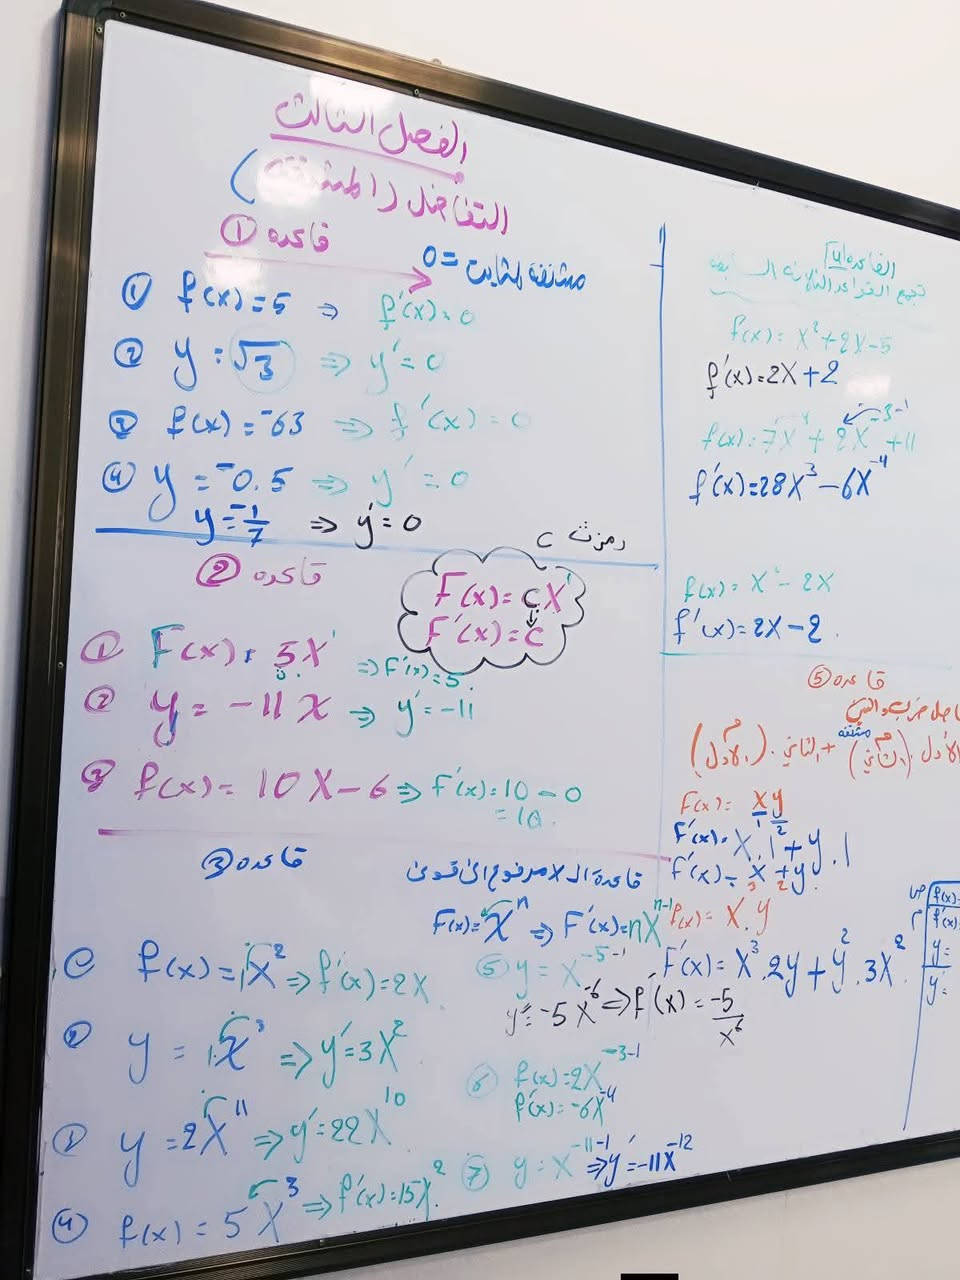 الفصل الثالث
التفاضل (المشتقة)
قاعده ①
مشتقة الثابت = 0
① f(x)=5 ⇒ f'(x)=0
② y=√3 ⇒ y'=0
③ f(x)=-63 ⇒ f'(x)=0
④ y=-0.5 ⇒ y'=0
y=-1/7 ⇒ y'=0
قاعده ②
C
F(x)=cX¹
F'(x)=C
① F(x)=5X¹ ⇒ F'(x)=5.
② y=-11X ⇒ y'=-11
③ f(x)=10X-6 ⇒ F'(x)=10-0
=10.
قاعده ③
قاعدة الـ x مرفوع الى قوى
F(x)=X^n ⇒ F'(x)=nX^n-1
f(x)=1X² ⇒ f'(x)=2X
y=1.X³ ⇒ y'=3X²
y=2X^11 ⇒ y'=22X^10
④ f(x)=5X³ ⇒ f'(x)=15X².
⑤ y=X^-5-1
y'=-5X^-6 ⇒ f'(x)=-5/x^6
⑥ f(x)=2X^-3-1
f'(x)=-6X^-4
⑦ y=X^-11-1 ⇒ y'=-11X^-12
القاعده [4]
تجمع القواعد الثلاثة السابقة
f(x)=X²+2X-5
f'(x)=2X+2
f(x)=7X^4+2X^-3-1+11
f'(x)=28X³-6X^-4
f(x)=X²-2X
f'(x)=2X-2.
قاعده ⑤
الأول.(الثاني)م + الثاني.(الأول)م
مشتقه
F(x)=xy
1 2
F'(x)=X.1+y.1
F'(x)=x+y.
f(x)=X³.y²
F'(x)=X³.2y+y².3X².
f(x)=
f'(x)=
y=
y'=